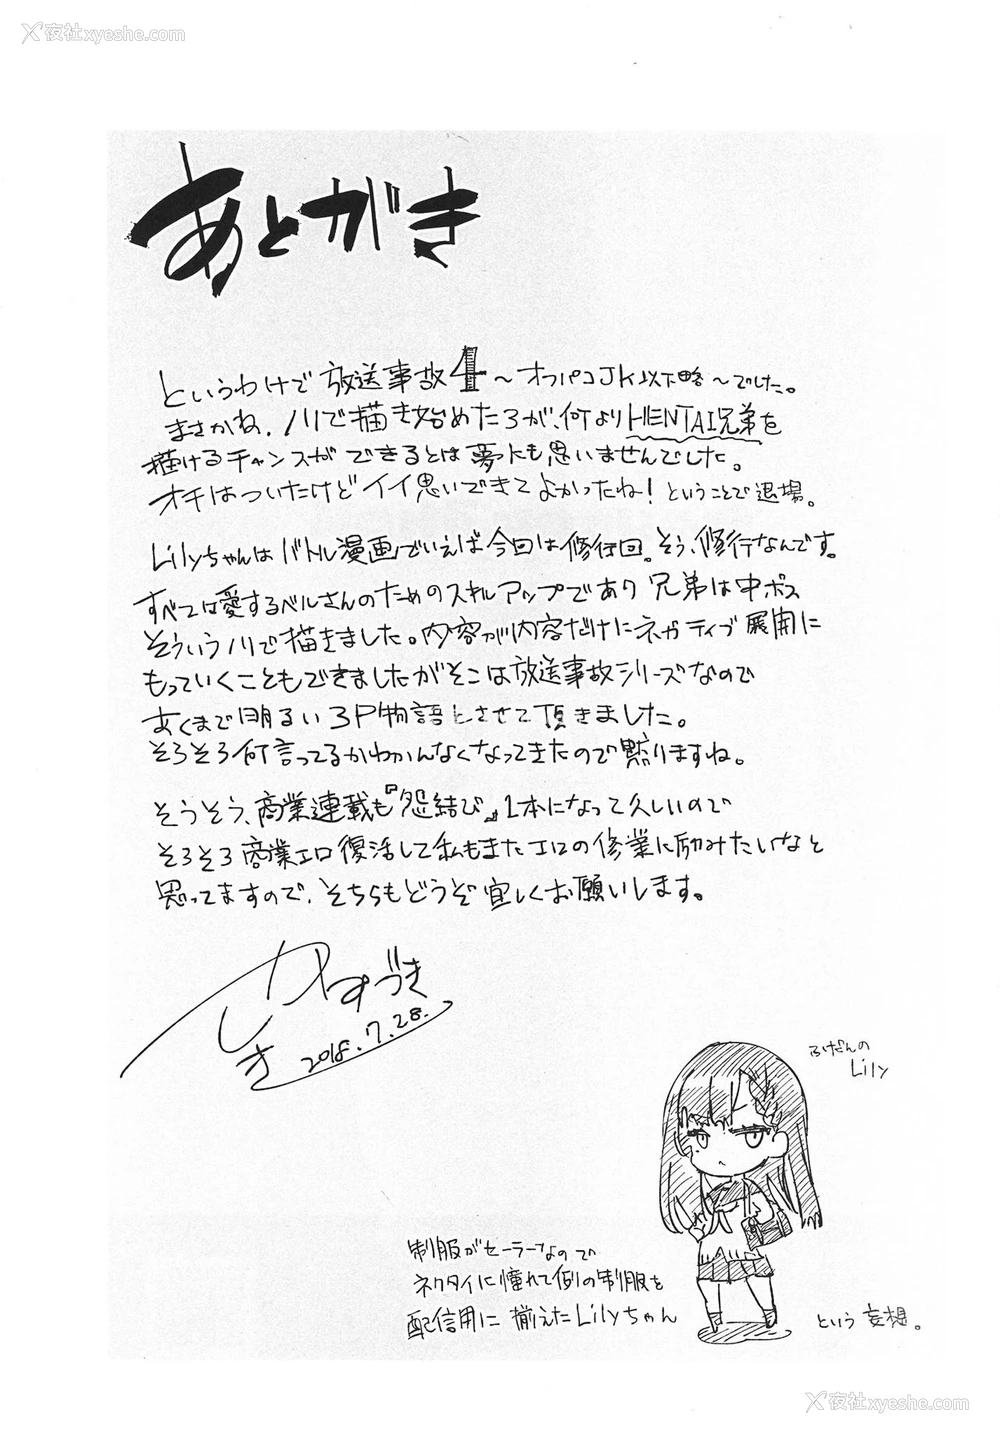 夜社xyeshe.com
夜社xyeshe.com
あとがき
というわけで放送事故4～オフパコJK以下略～でした。
まさかね、ノリで描き始めたろが、何よりHENTAI兄弟を
描けるチャンスができるとは夢にも思いませんでした。
オチはついたけどイイ思いできてよかったね!ということで退場。
Lilyちゃんはバトル漫画でいえば今回は修行回。そう、修行なんです。
すべては愛するベルさんのためのスキルアップであり兄弟は中ボス
そういうノリで描きました。内容が内容だけにネガティブ展開に
もっていくこともできましたがそこは放送事故シリーズなので
あくまで明るい3P物語とさせて頂きました。
そろそろ何言ってるかわかんなくなってきたので黙りますね。
そうそう、商業連載も『怨結び』1本になって久しいので
そろそろ商業エロ復活して私もまたエロの修業に励みたいなと
思ってますので、そちらもどうぞ宜しくお願いします。
かずづき
しき
2018.7.28.
ふだんの
Lily
制服がセーラーなので
ネクタイに憧れて例の制服を
配信用に揃えたLilyちゃん
という妄想。
夜社xyeshe.com
夜社xyeshe.com